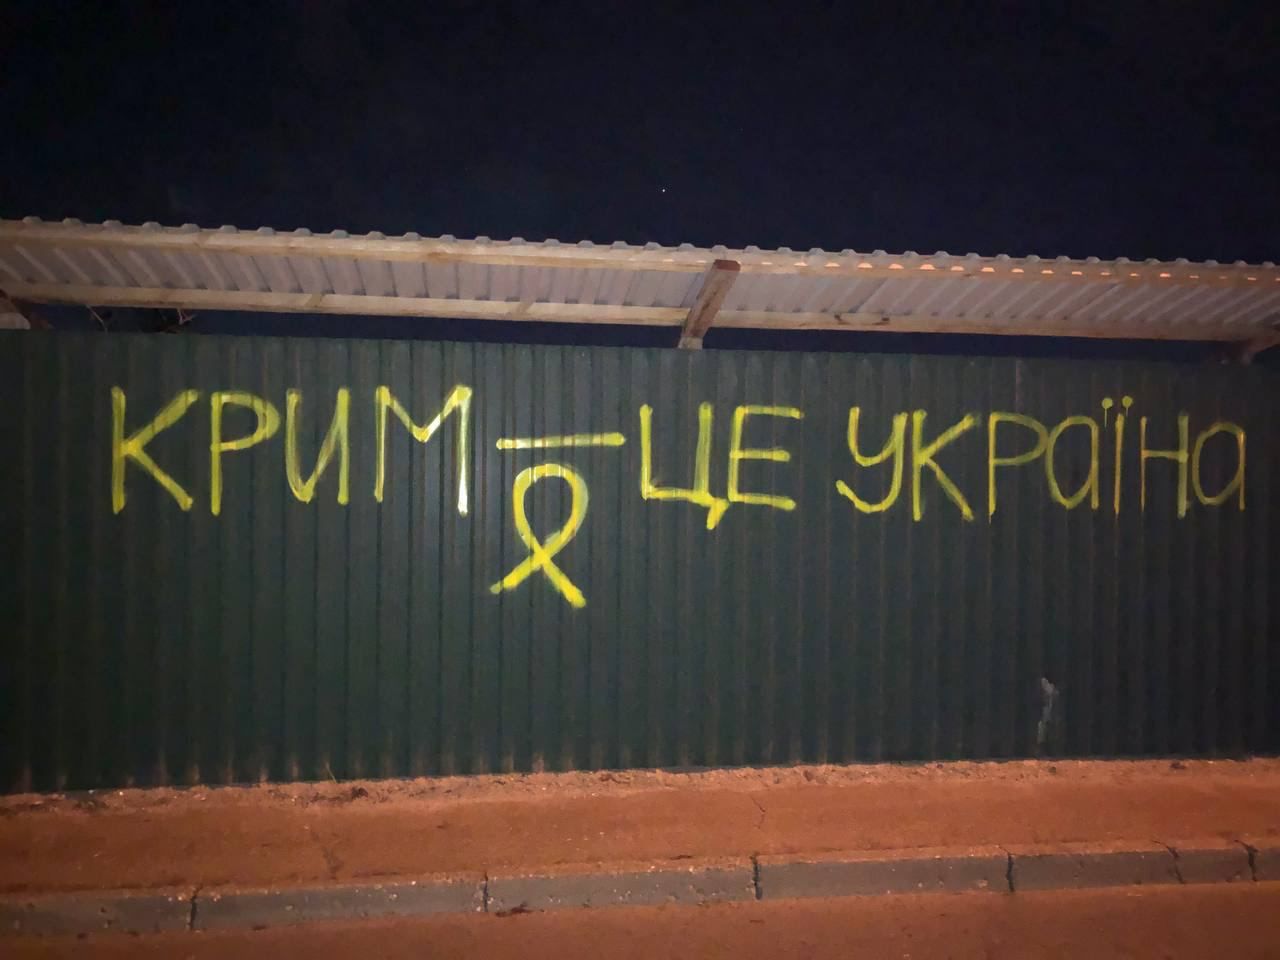 КРИМ - ЦЕ УКРАЇНА